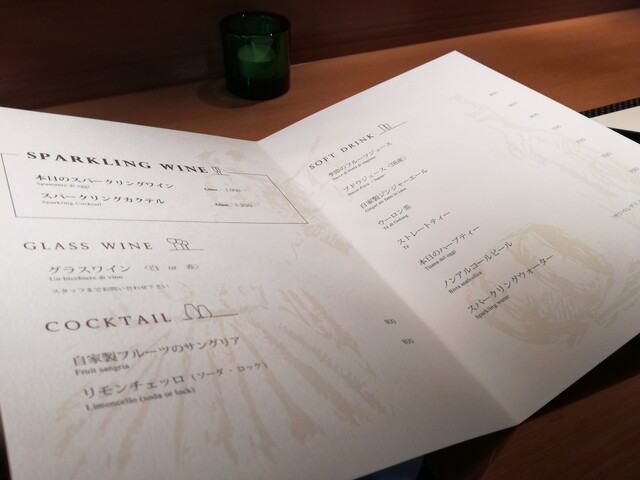 SPARKLING WINE
本日のスパークリングワイン
Spumante di oggi
スパークリングカクテル 1,200
Sparkling Cocktail
GLASS WINE
グラスワイン （白 or 赤）
Un bicchiere di vino
スタッフまでお問い合わせ下さい
COCKTAIL
自家製フルーツのサングリア 800
Fruit sangria
リモンチェッロ（ソーダ・ロック） 800
Limoncello (soda or lock)
SOFT DRINK
季節のフルーツジュース
ブドウジュース（国産）
自家製ジンジャーエール
ウーロン茶
ストレートティー
本日のハーブティー
Tisana del oggi
ノンアルコールビール
Birra analcolica
スパークリングウォーター
Sparkling water